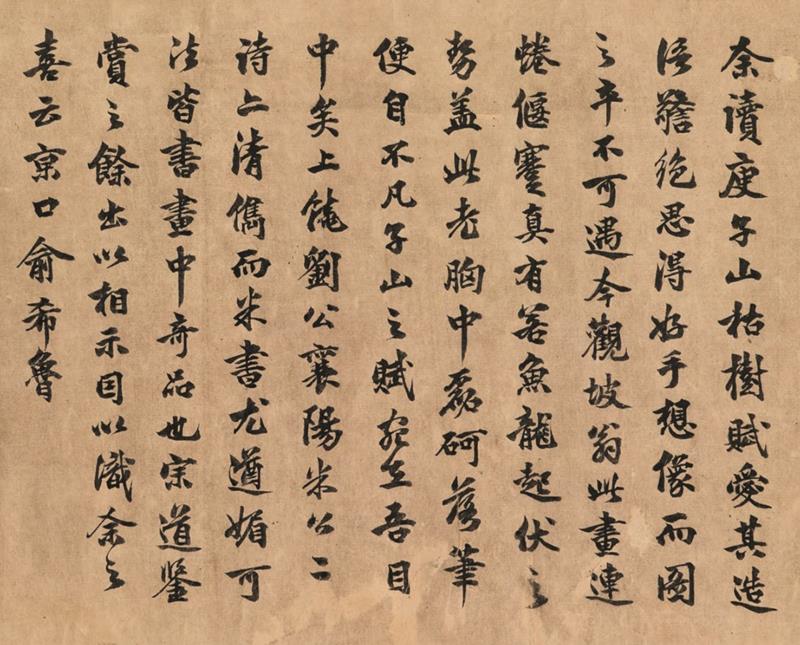 余讀庾子山枯樹賦愛其造
語警絕思得好手想像而圖
之卒不可遇今觀坡翁此畫連
蜷偃蹇真有若魚龍起伏之
勢蓋此老胸中磊砢落筆
便自不凡子山之賦宛在吾目
中矣上饒劉公襄陽米公二
詩亦清儁而米書尤遒媚可
法皆書畫中奇品也宗道鑒
賞之餘出以相示因以識余之
喜云京口俞希魯